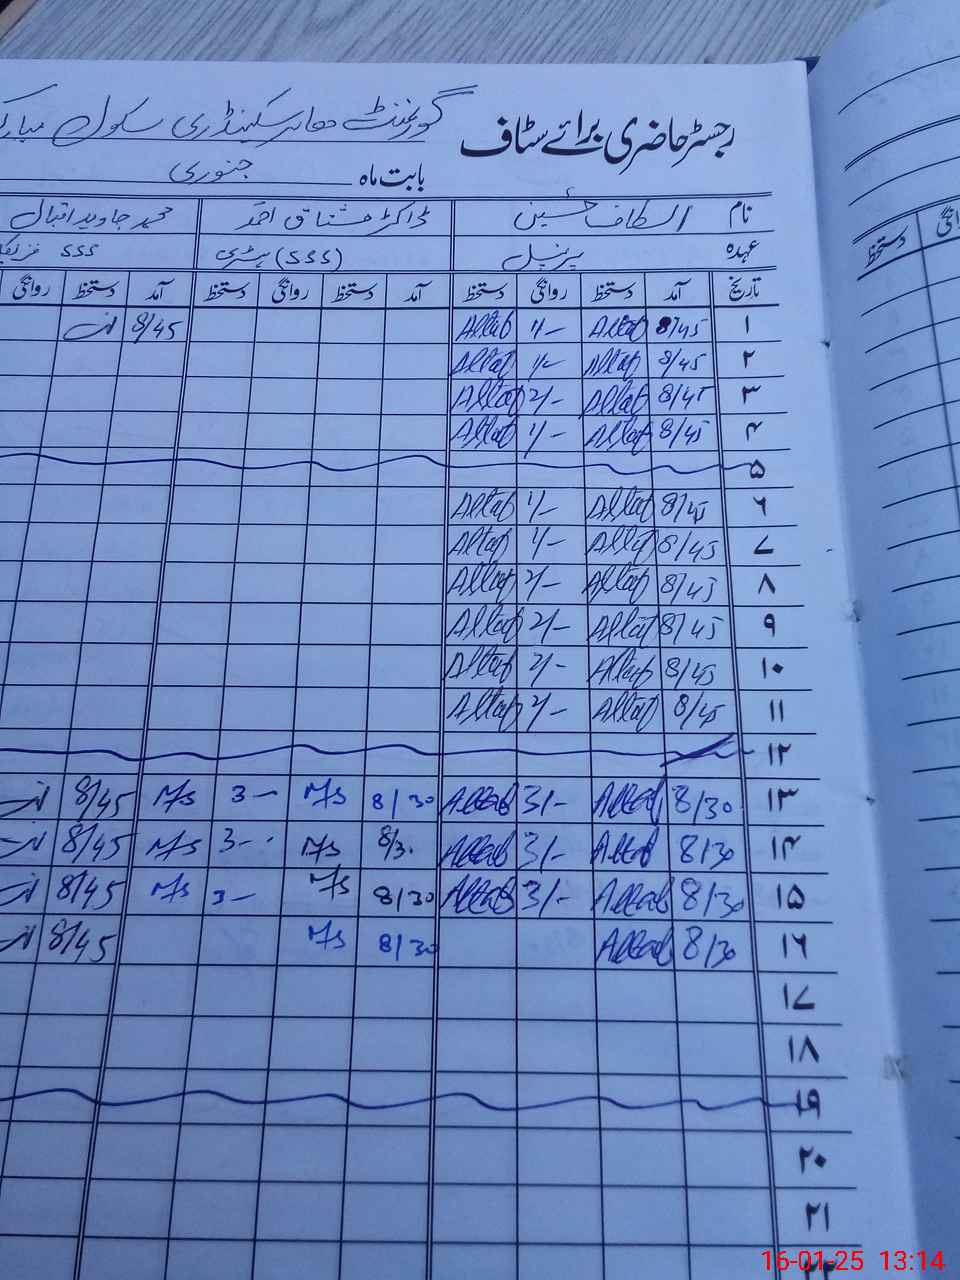 رجسٹر حاضری برائے سٹاف گورنمنٹ ہائر سکینڈری سکول
بابت ماہ جنوری
نام الطاف حسین ڈاکٹر مشتاق احمد محمد جاوید اقبال
عہدہ پرنسپل (SSS) ہسٹری SSS
تاریخ آمد دستخط روانگی دستخط آمد دستخط روانگی دستخط آمد دستخط روانگی
۱ 8/45 Altaf 1/- Altaf 8/45
۲ 8/45 Altaf 1/- Altaf
۳ 8/45 Altaf 2/- Altaf
۴ 8/45 Altaf 1/- Altaf
۵
۶ 8/45 Altaf 1/- Altaf
۷ 8/45 Altaf 1/- Altaf
۸ 8/45 Altaf 2/- Altaf
۹ 8/45 Altaf 2/- Altaf
۱۰ 8/45 Altaf 2/- Altaf
۱۱ 8/45 Altaf 2/- Altaf
۱۲
۱۳ 8/30 Altaf 3/- Altaf 8/30 M/s 3- M/s 8/45
۱۴ 8/30 Altaf 3/- Altaf 8/3. M/s 3- M/s 8/45
۱۵ 8/30 Altaf 3/- Altaf 8/30 M/s 3- M/s 8/45
۱۶ 8/30 Altaf 8/30 M/s 8/45
۱۷
۱۸
۱۹
۲۰
۲۱
دستخط
16-01-25 13:14